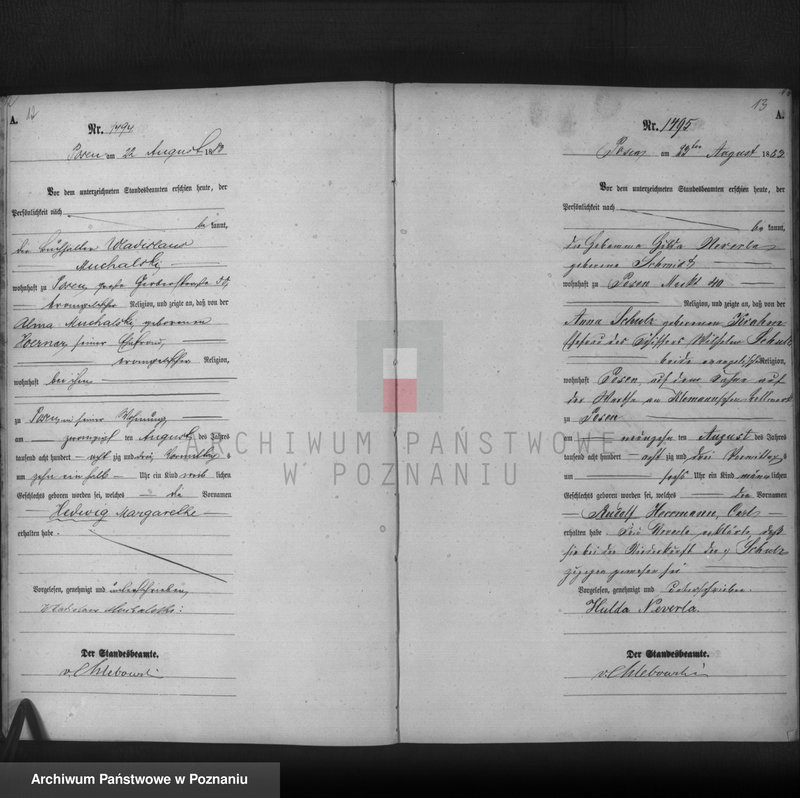 12
A.
Nr. 1494
Posen am 22 August 1883
Vor dem unterzeichneten Standesbeamten erschien heute, der
Persönlichkeit nach
be kannt,
der Buchhalter Wladislaus
Muchalski
wohnhaft zu Posen, große Gerberstraße
evangelischer Religion, und zeigte an, daß von der
Alma Muchalski geborenen
Hoerner seiner Ehefrau,
evangelischer Religion,
wohnhaft bei ihm
zu Posen in seiner Wohnung
am zwanzigsten August des Jahres
tausend acht hundert achtzig und drei Vormittags
um zehn ein halb Uhr ein Kind weiblichen
Geschlechts geboren worden sei, welches die Vornamen
Hedwig Margarethe
erhalten habe.
Vorgelesen, genehmigt und unterschrieben
Der Standesbeamte.
v. Chlebowski
13
A.
Nr. 1495
Posen am 22ten August 1883
Vor dem unterzeichneten Standesbeamten erschien heute, der
Persönlichkeit nach
be kannt,
die Hebamme Hulda Neverla
geborene Schmidt
wohnhaft zu Posen Markt 40
Religion, und zeigte an, daß von der
Anna Schulz geborenen
Ehefrau des Schiffers Wilhelm Schulz
beide evangelischer Religion,
wohnhaft Posen, auf dem Kahne auf
der Warthe am
zu Posen
am neunzehnten August des Jahres
tausend acht hundert achtzig und drei Vormittags
um sechs Uhr ein Kind männlichen
Geschlechts geboren worden sei, welches die Vornamen
Rudolf Herrmann, Carl
erhalten habe. Die Neverla erklärte, daß
sie bei der Niederkunft der Schulz
zugegen gewesen sei
Vorgelesen, genehmigt und unterschrieben.
Hulda Neverla
Der Standesbeamte.
v. Chlebowski
ARCHIWUM PAŃSTWOWE
W POZNANIU
Archiwum Państwowe w Poznaniu